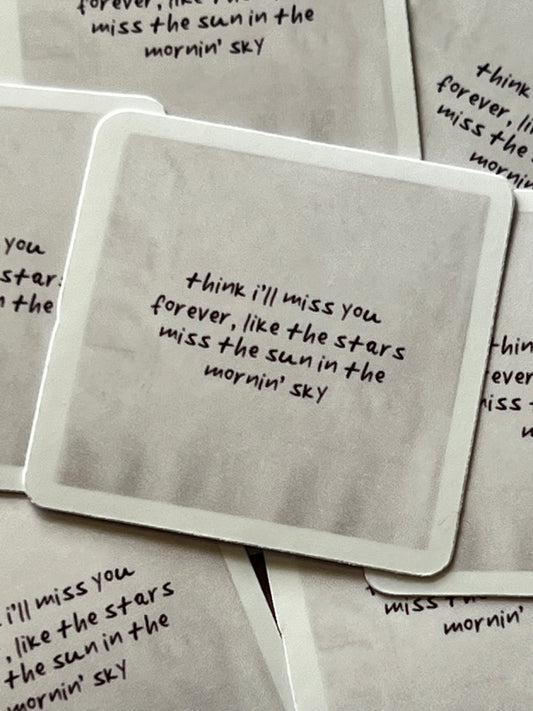 forever, like the
miss the sun in the
mornin' sky
think
forever, li
miss the
mornin
you
star
the
think i'll miss you
forever, like the stars
miss the sun in the
mornin' sky
thin
ever
iss
i'll miss you
, like the stars
the sun in the
mornin' sky
miss
mornin'